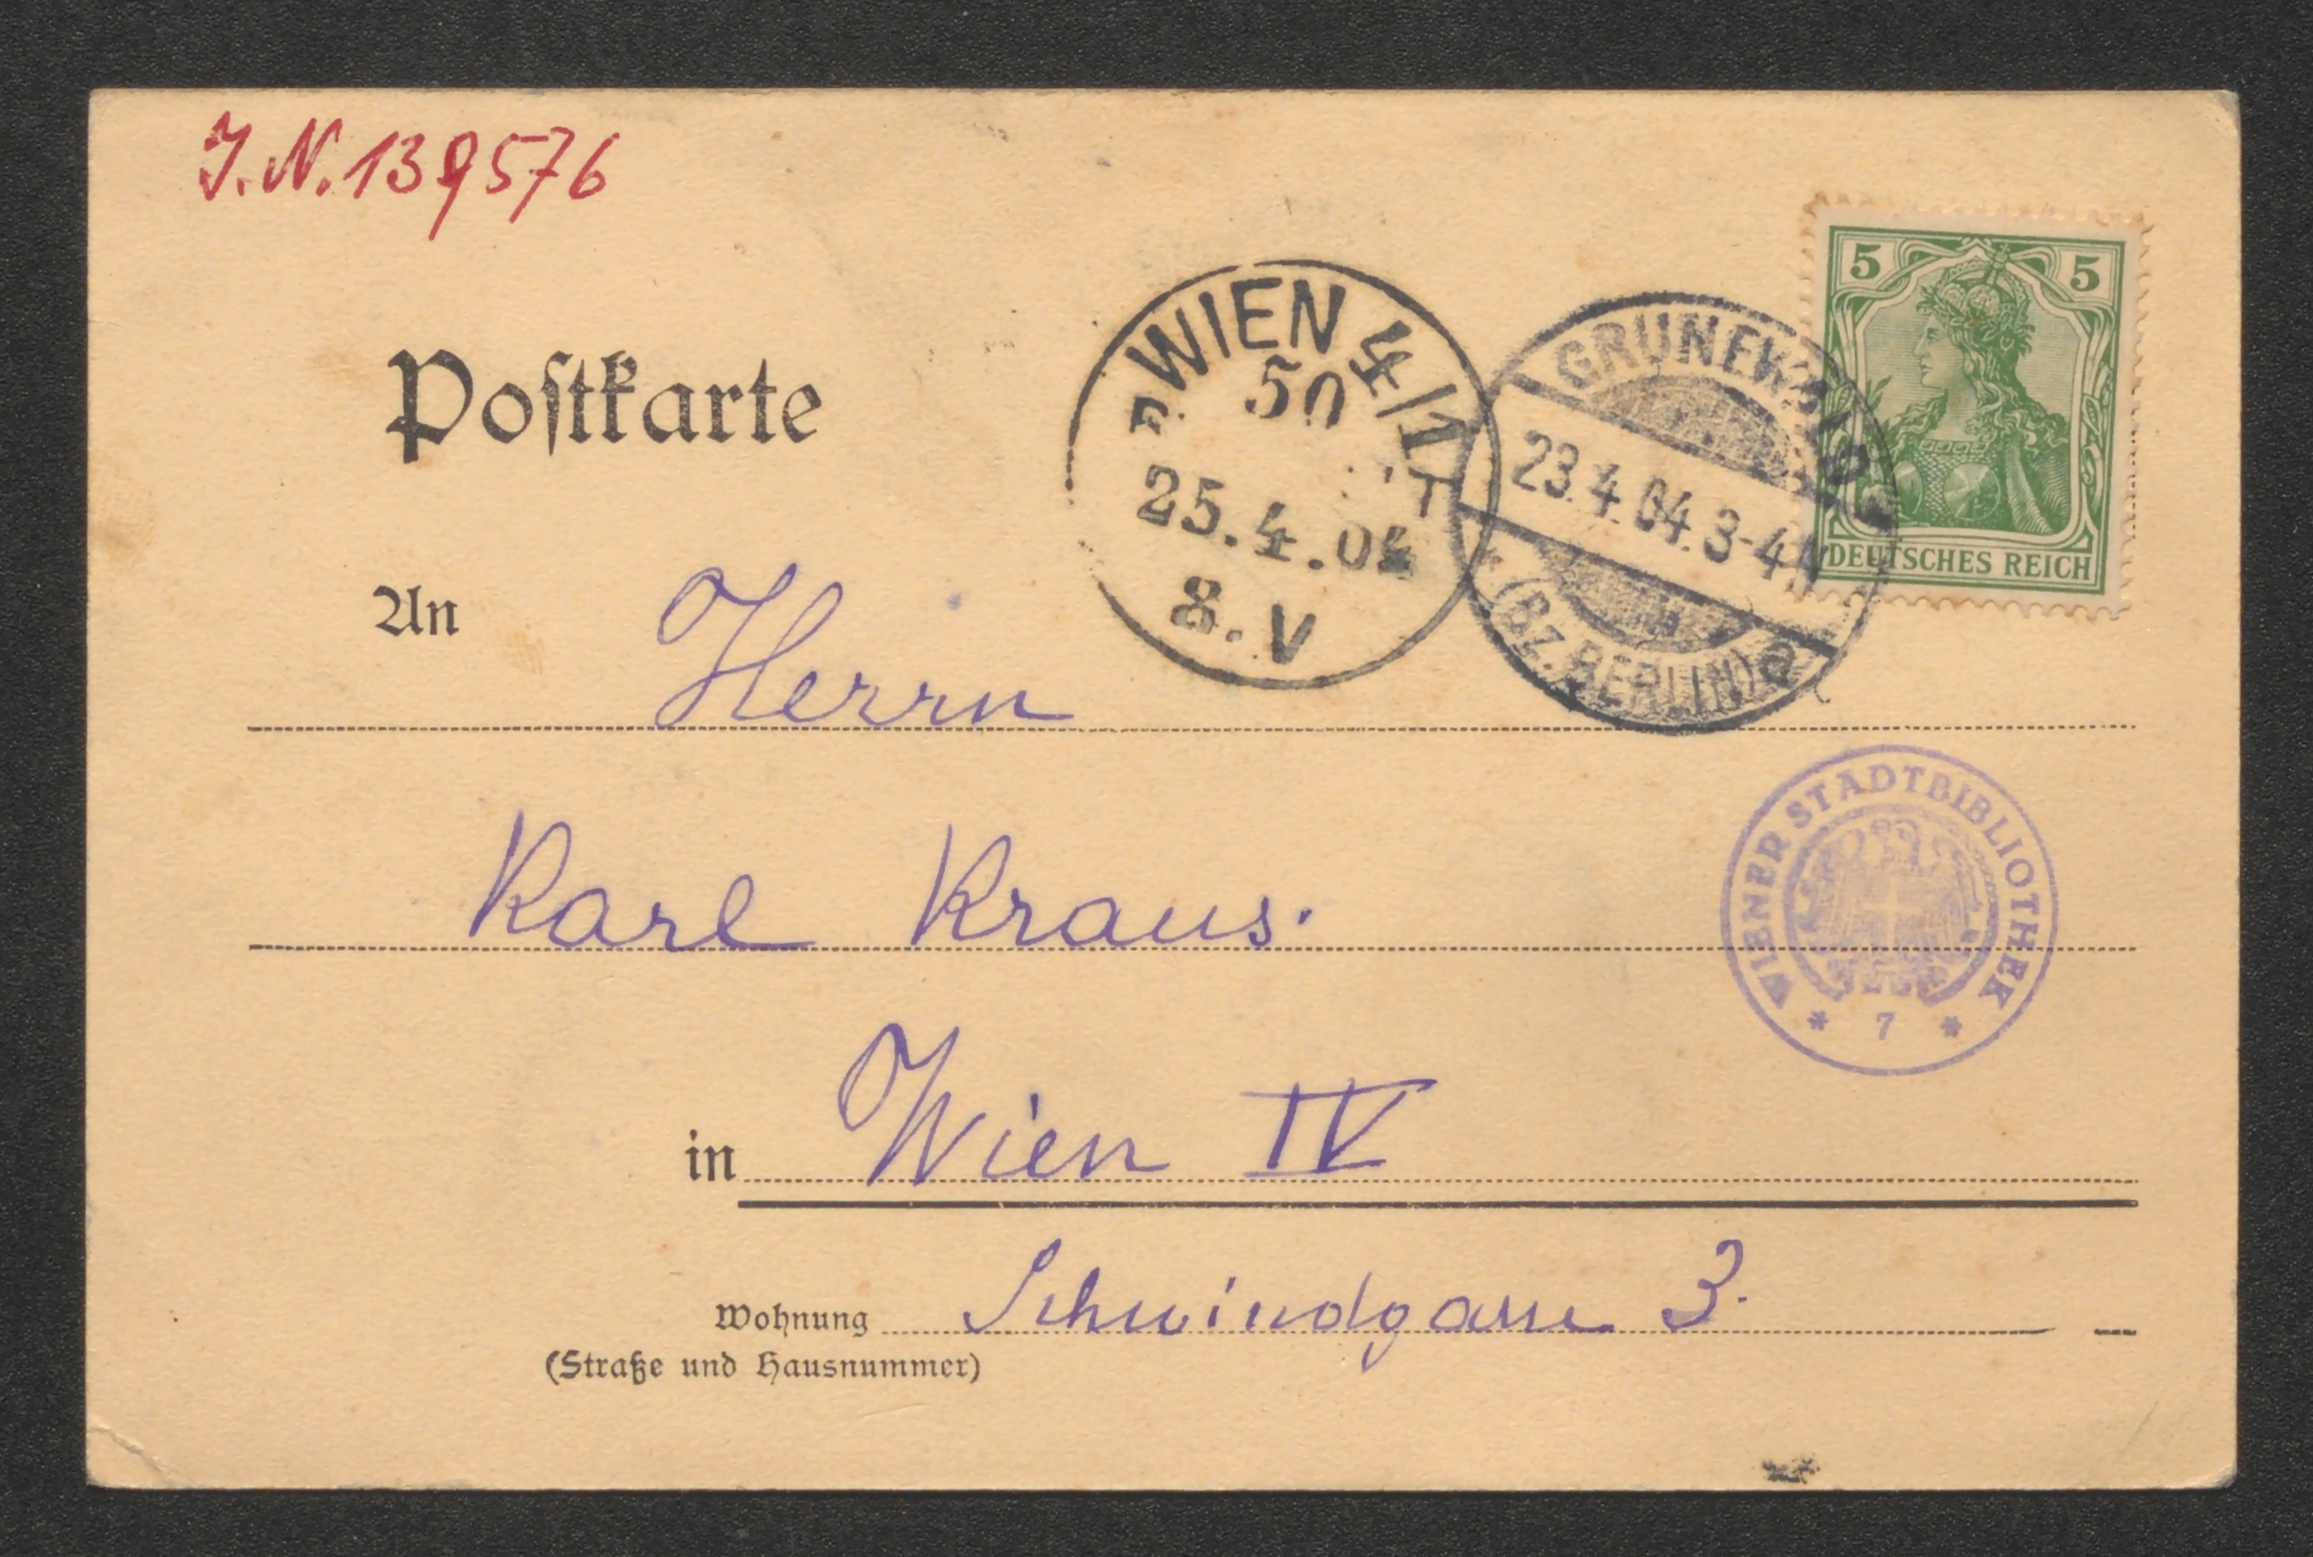 J.N. 139576
Postkarte
WIEN 4/1
50
25.4.04
8. V
GRUNEWALD
23.4.04. 3-4 N
(BZ. BERLIN) a
5 5
DEUTSCHES REICH
An Herrn
Karl Kraus.
WIENER STADTBIBLIOTHEK
* 7 *
in Wien IV
Wohnung Schwindgasse 3.
(Straße und Hausnummer)